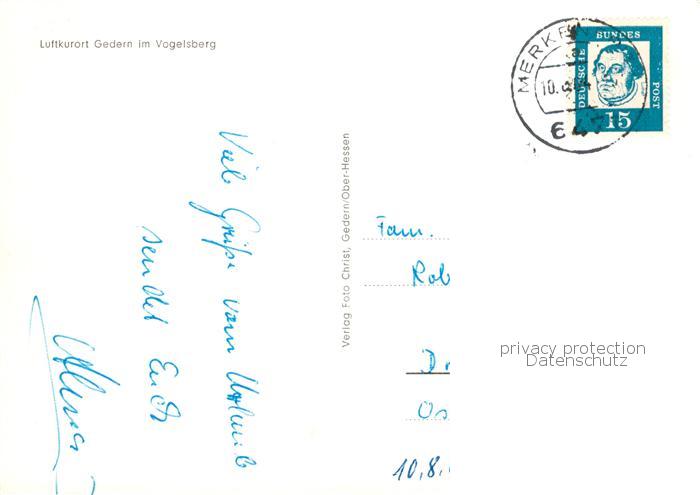 Luftkurort Gedern im Vogelsberg
Viele Grüße vom Urlaub
sendet Euch
Verlag Foto Christ, Gedern/Ober-Hessen
MERKEN
10.
64
DEUTSCHE BUNDES POST
15
Fam.
Rob
Os
10.8.
privacy protection
Datenschutz